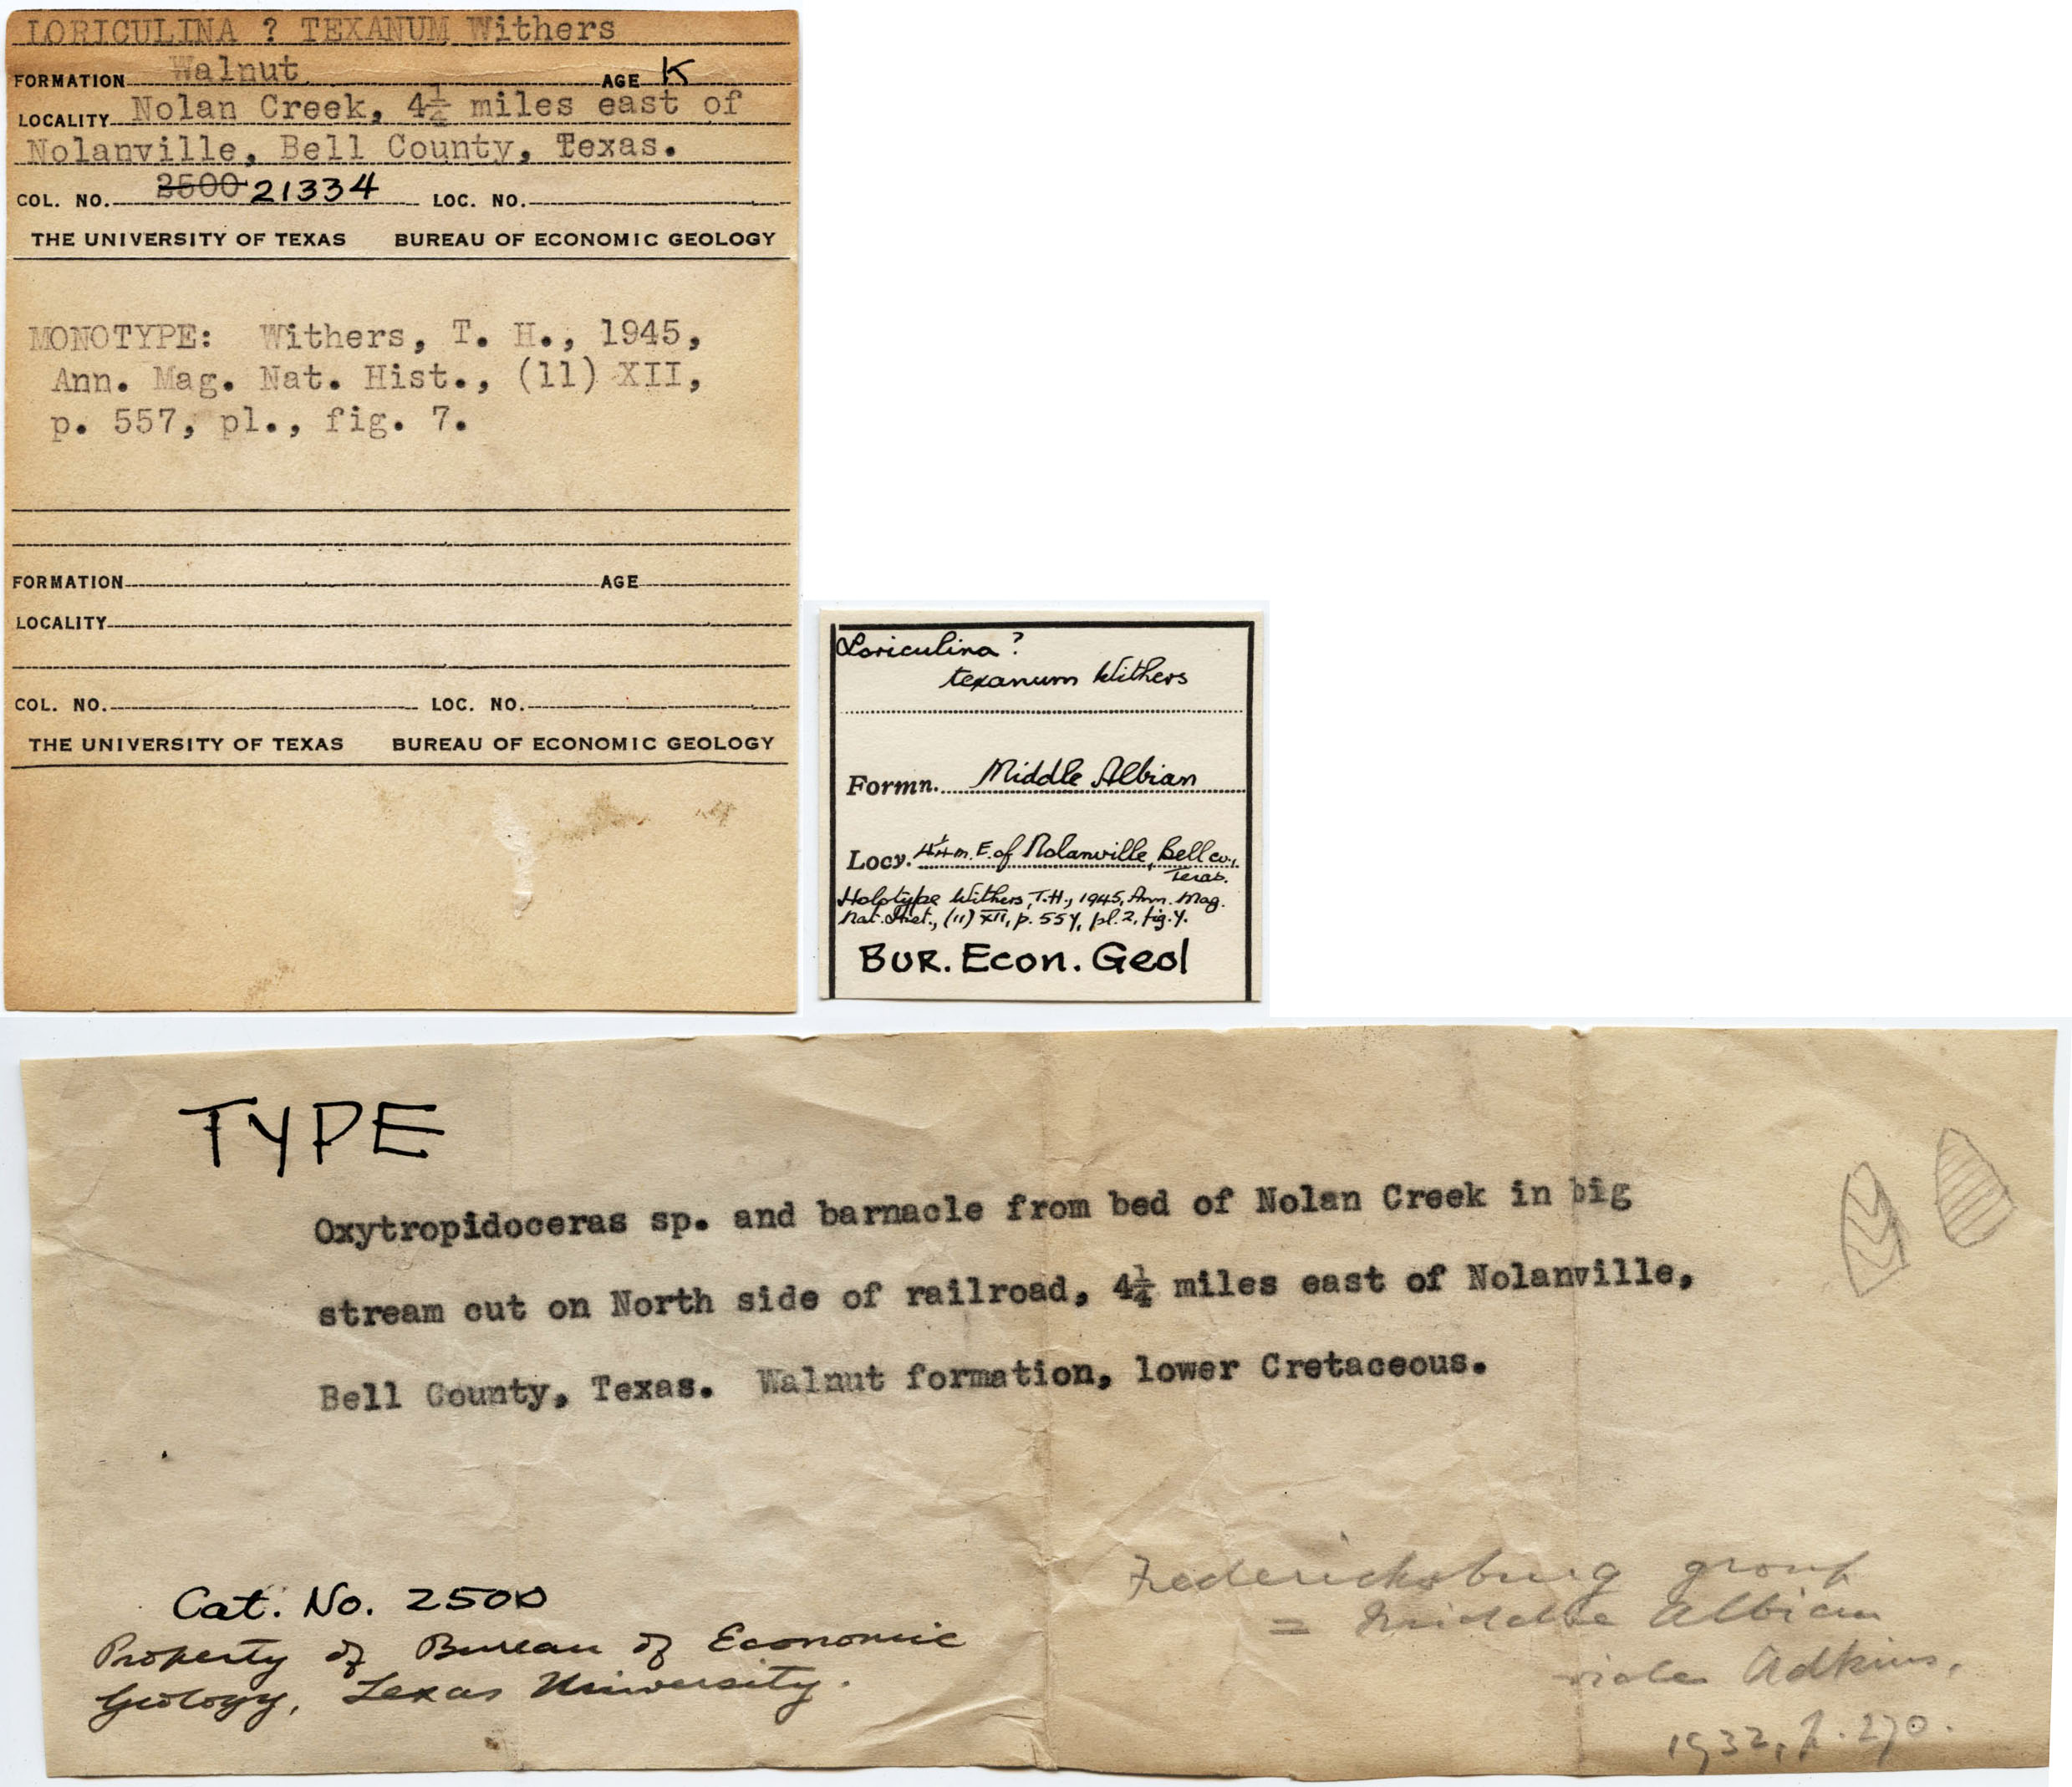 LORICULINA ? TEXANUM Withers
FORMATION Walnut AGE K
LOCALITY Nolan Creek, 4¼ miles east of
Nolanville, Bell County, Texas.
COL. NO. 2500 21334 LOC. NO.
THE UNIVERSITY OF TEXAS BUREAU OF ECONOMIC GEOLOGY
MONOTYPE: Withers, T. H., 1945,
Ann. Mag. Nat. Hist., (11) XII,
p. 557, pl., fig. 7.
FORMATION AGE
LOCALITY
COL. NO. LOC. NO.
THE UNIVERSITY OF TEXAS BUREAU OF ECONOMIC GEOLOGY
Loriculina?
texanum Withers
Formn. Middle Albian
Locy. 4¼ m. E. of Nolanville, Bell co.,
Texas.
Holotype Withers, T.H., 1945, Ann. Mag.
Nat. Hist., (11) XII, p. 557, pl. 2, fig. 7.
BUR. Econ. Geol
TYPE
Oxytropidoceras sp. and barnacle from bed of Nolan Creek in big
stream cut on North side of railroad, 4¼ miles east of Nolanville,
Bell County, Texas. Walnut formation, lower Cretaceous.
Cat. No. 2500
Property of Bureau of Economic
Geology, Texas University.
Fredericksburg group
= Middle Albian
vide Adkins,
1932, p. 270.